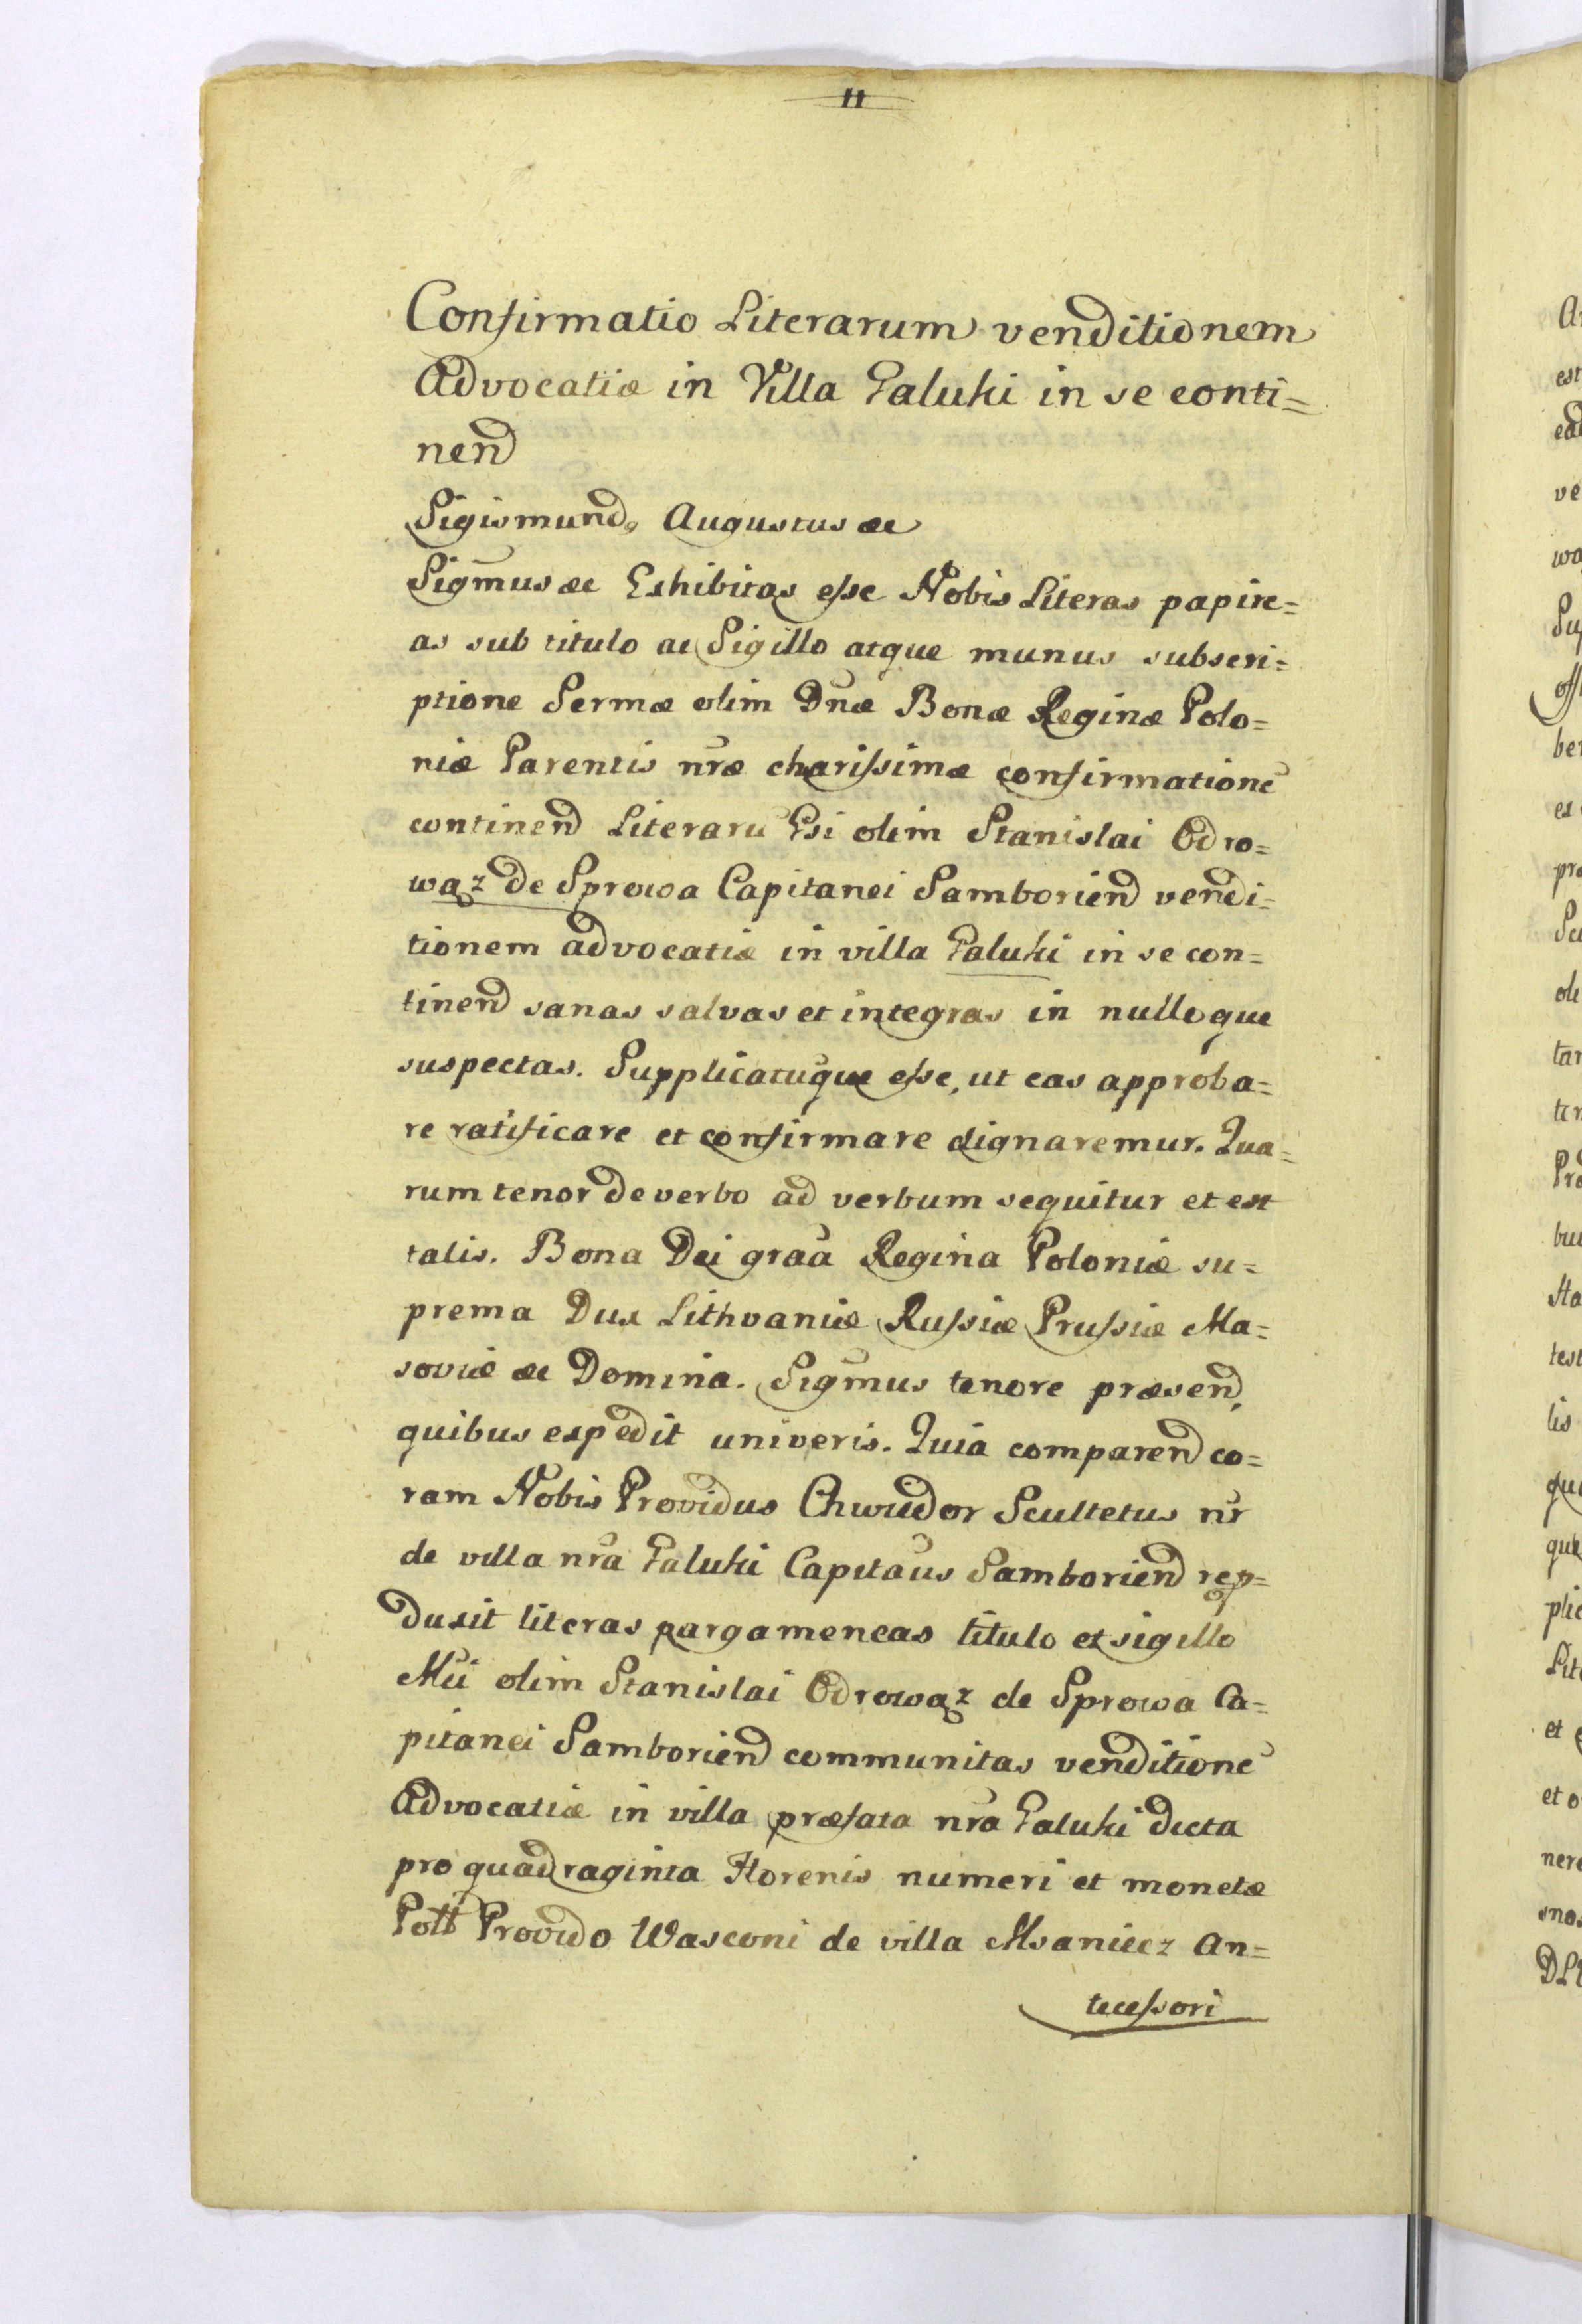 11
Confirmatio Literarum venditionem
Advocatiæ in Villa Galuki in se conti=
nend
Sigismund, Augustus ac
Sigm̃us ac Exhibitas esse Nobis Literas papire=
as sub titulo ac Sigillo atque munus subscri=
ptione Sermæ olim Dn̄æ Bonæ Reginæ Polo=
niæ Parentis nr̄æ charissimæ confirmationē
continend Literarū Gsi olim Stanislai Odro=
wąz de Sprowa Capitanei Samboriend vendi=
tionem advocatiæ in villa Galuki in se con=
tinend sanas salvas et integras in nulloque
suspectas. Supplicatūque esse, ut eas approba=
re ratificare et confirmare dignaremur. Qua=
rum tenor de verbo ad verbum sequitur et est
talis. Bona Dei graã Regina Poloniæ su=
prema Dux Lithvaniæ Russiæ Prussiæ Ma=
soviæ ac Domina. Sigm̃us tenore præsend,
quibus expedit univeris. Quia comparend co=
ram Nobis Providus Chwiedor Scultetus nr̃
de villa nr̃a Galuki Capitaũs Samboriend rep=
duxit literas pargameneas titulo et sigillo
Mĩi olim Stanislai Odrowąz de Sprowa Ca=
pitanei Samboriend communitas venditionē
Advocatiæ in villa præfata nr̃a Galuki dicta
pro quadraginta Florenis numeri et monetæ
Poll Provido Wasconi de villa Msaniecz An=
tecessori